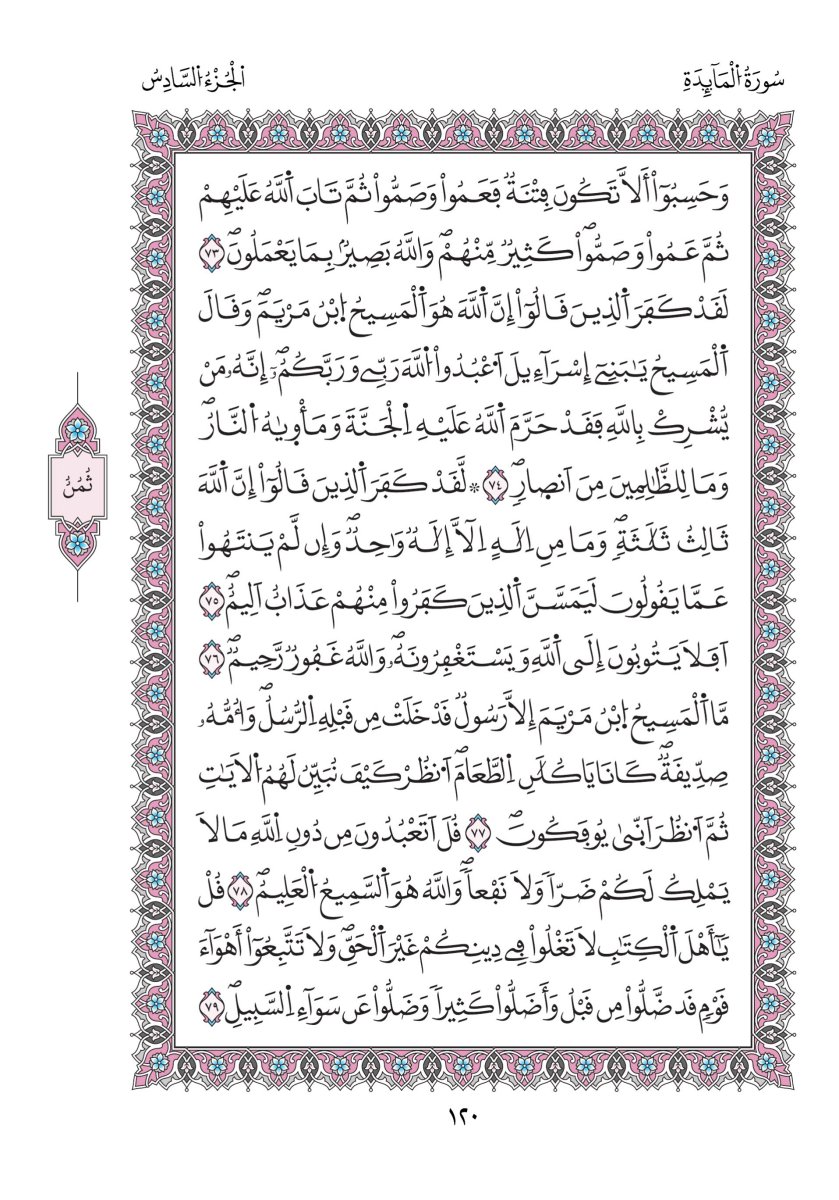 سُورَةُ الْمَآئِدَةِ
اَلْجُزْءُ السَّادِسُ
وَحَسِبُوٓاْ أَلَّا تَكُونَ فِتْنَةٌ فَعَمُواْ وَصَمُّواْ ثُمَّ تَابَ اَللَّهُ عَلَيْهِمْ
ثُمَّ عَمُواْ وَصَمُّواْ كَثِيرٌ مِّنْهُمْ وَاللَّهُ بَصِيرٌ بِمَا يَعْمَلُونَ ٧٣
لَقَدْ كَفَرَ اَلذِينَ قَالُوٓاْ إِنَّ اَللَّهَ هُوَ اَلْمَسِيحُ اُبْنُ مَرْيَمَ وَقَالَ
اَلْمَسِيحُ يَٰبَنِےٓ إِسْرَآءِيلَ اَعْبُدُواْ اُللَّهَ رَبِّے وَرَبَّكُمُۥٓ إِنَّهُۥ مَنْ
يُّشْرِكْ بِاللَّهِ فَقَدْ حَرَّمَ اَللَّهُ عَلَيْهِ اِلْجَنَّةَ وَمَأْوِيٰهُ اُلنَّارُ
وَمَا لِلظَّٰلِمِينَ مِنَ اَنصِارٖ ٧٤ ۞ لَّقَدْ كَفَرَ اَلذِينَ قَالُوٓاْ إِنَّ اَللَّهَ
ثَالِثُ ثَلَٰثَةٖ وَمَا مِنِ اِلَٰهٍ اِلَّآ إِلَٰهٌ وَٰحِدٌ وَإِن لَّمْ يَنتَهُواْ
عَمَّا يَقُولُونَ لَيَمَسَّنَّ اَلذِينَ كَفَرُواْ مِنْهُمْ عَذَابٌ اَلِيمٌ ٧٥
اَفَلَا يَتُوبُونَ إِلَى اَللَّهِ وَيَسْتَغْفِرُونَهُۥ وَاللَّهُ غَفُورٌ رَّحِيمٌ ٧٦
مَّا اَلْمَسِيحُ اُبْنُ مَرْيَمَ إِلَّا رَسُولٌ قَدْ خَلَتْ مِن قَبْلِهِ اِلرُّسُلُ وَأُمُّهُۥ
صِدِّيقَةٌ كَانَا يَاكُلَٰنِ اِلطَّعَامَ اَنظُرْ كَيْفَ نُبَيِّنُ لَهُمُ اُلَايَٰتِ
ثُمَّ اَنظُرَ اَنّ۪يٰ يُوفَكُونَ ٧٧ قُلَ اَتَعْبُدُونَ مِن دُونِ اِللَّهِ مَا لَا
يَمْلِكُ لَكُمْ ضَرّاً وَلَا نَفْعاً وَاللَّهُ هُوَ اَلسَّمِيعُ اُلْعَلِيمُ ٧٨ قُلْ
يَٰٓأَهْلَ اَلْكِتَٰبِ لَا تَغْلُواْ فِے دِينِكُمْ غَيْرَ اَلْحَقِّ وَلَا تَتَّبِعُوٓاْ أَهْوَآءَ
قَوْمٖ قَد ضَّلُّواْ مِن قَبْلُ وَأَضَلُّواْ كَثِيراً وَضَلُّواْ عَن سَوَآءِ اِلسَّبِيلِ ٧٩
ثُمُنُ
١٢٠